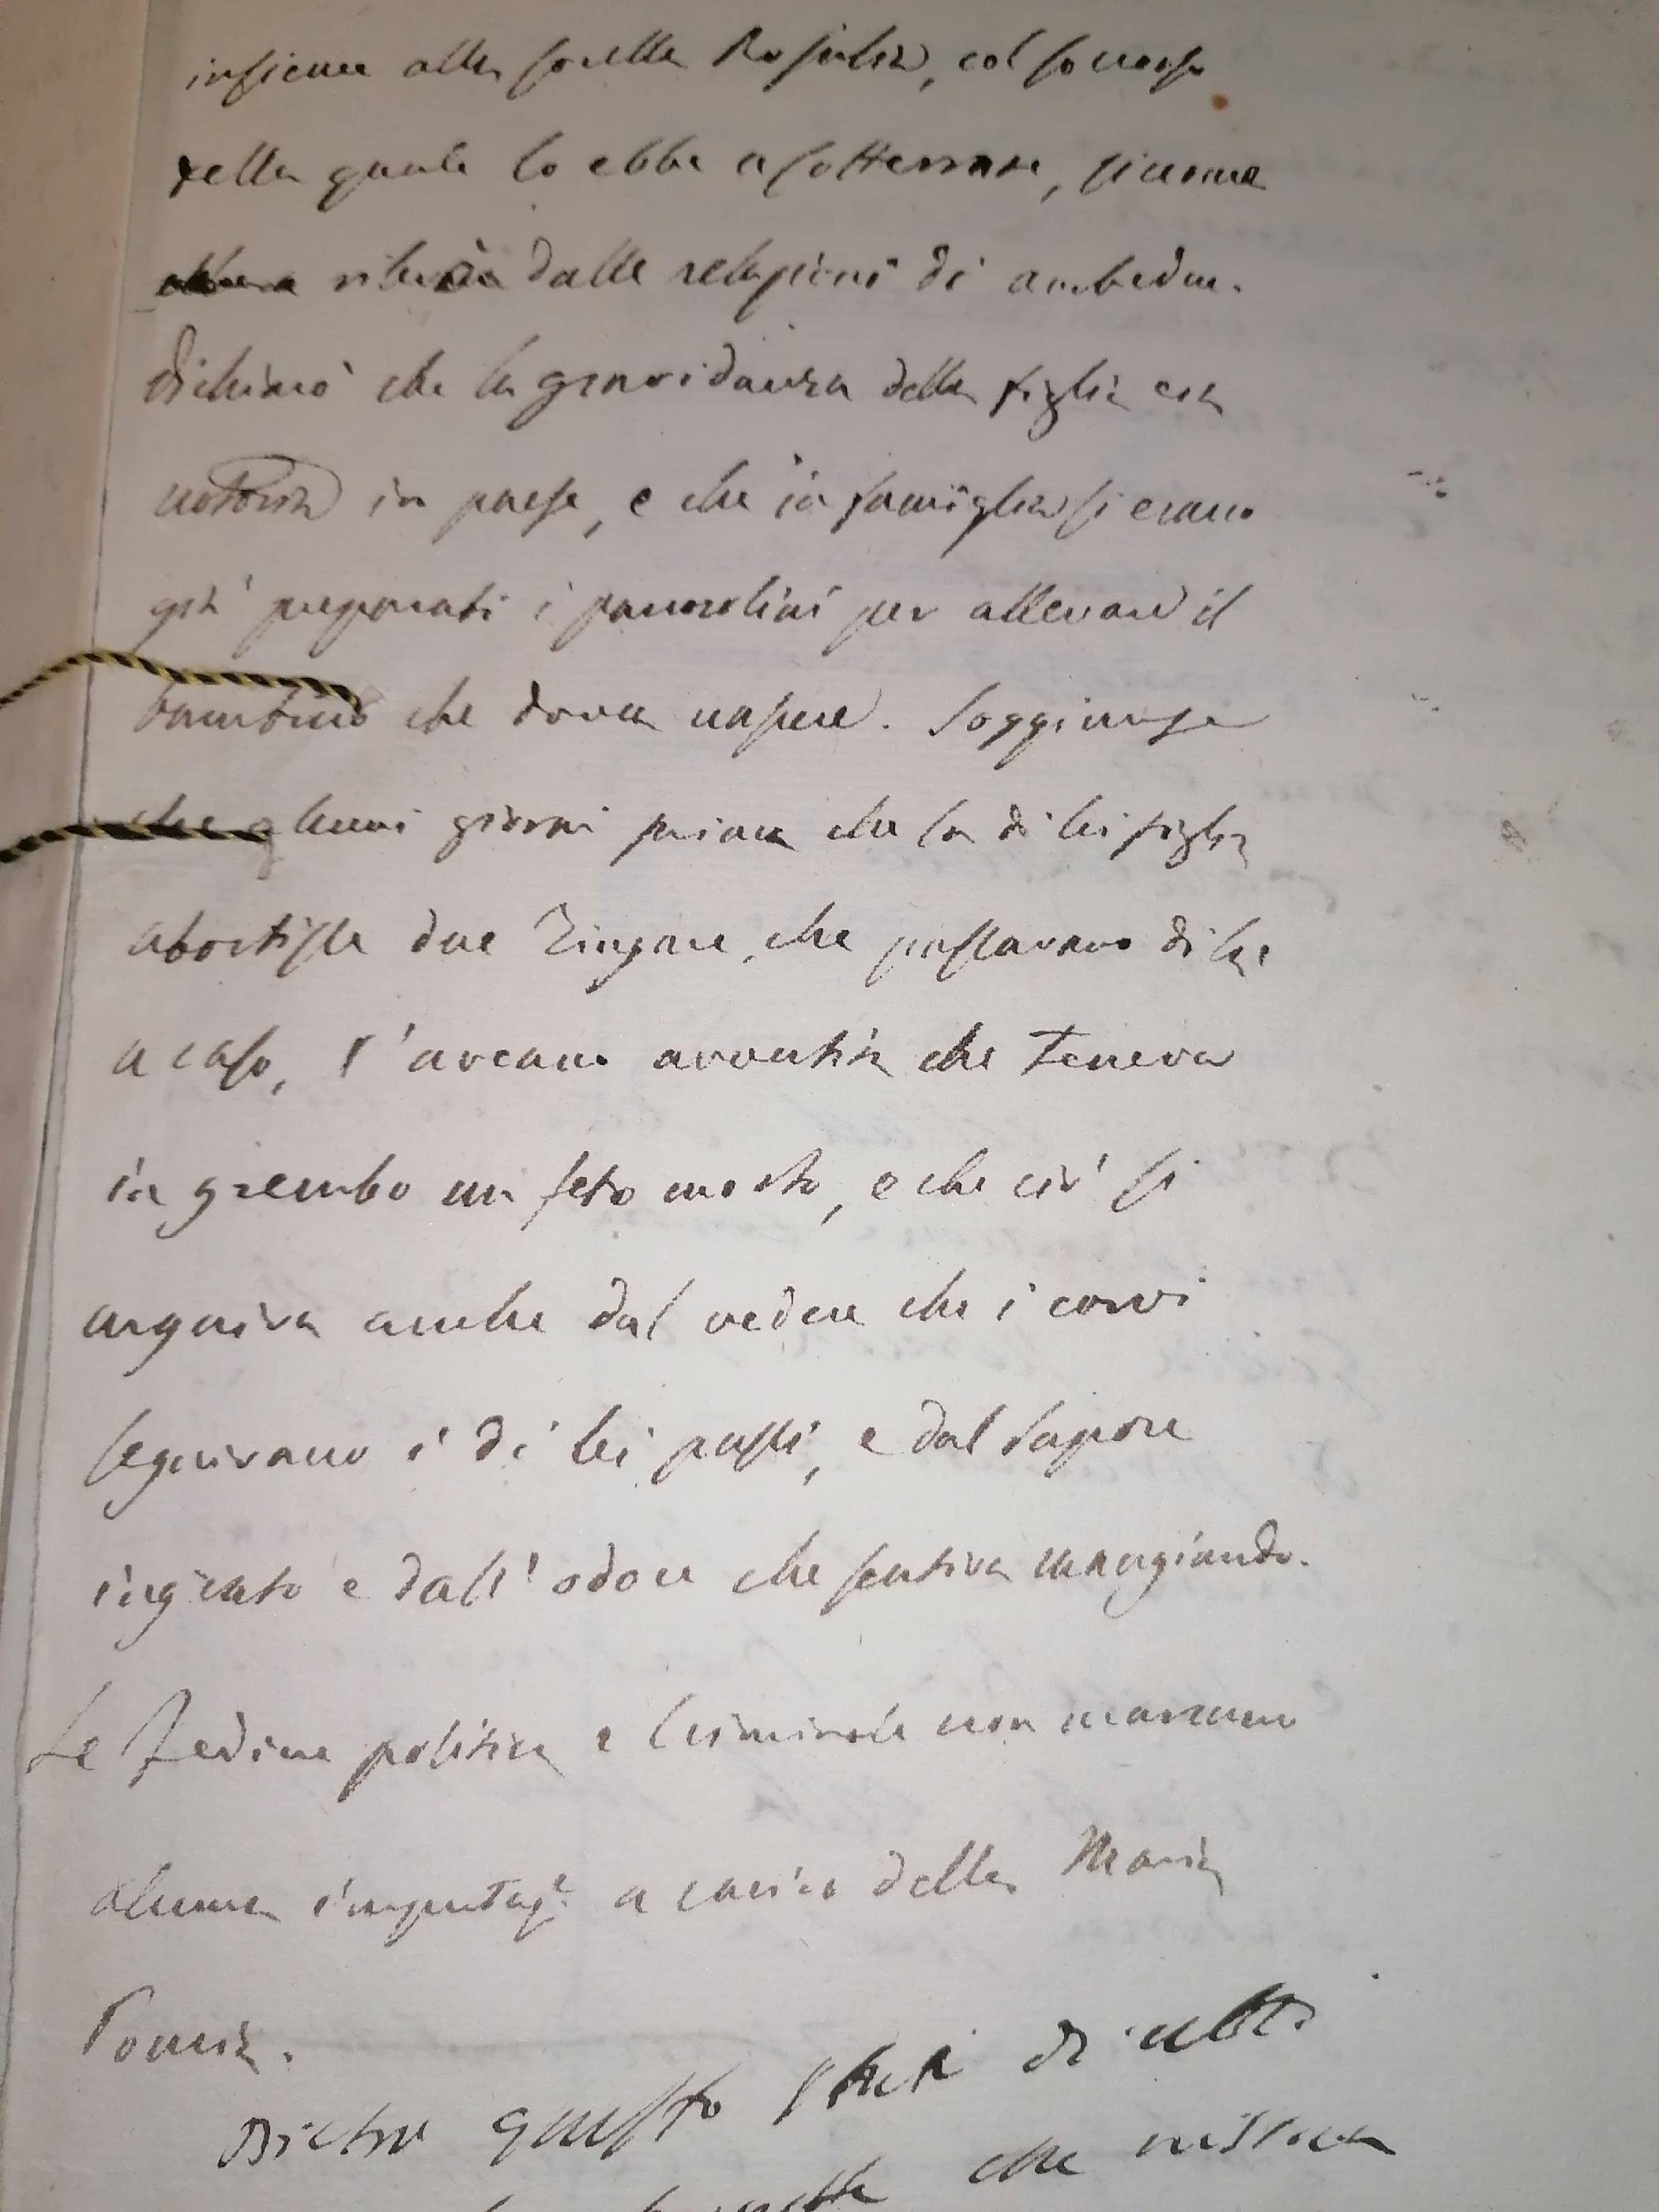 insieme alla sorella Rosalia, col soccorso
della quale lo ebbe a sotterrare, siccome
rilevasi dalle relazioni di ambedue.
Dichiarò che la gravidanza della figlia era
notoria in paese, e che in famiglia si erano
già preparati i pannolini per allevare il
bambino che dovea nascere. Soggiunse
che alcuni giorni prima che la di lei figlia
abortisse due Zingare, che passavano di là
a caso, l'aveano avvertita che teneva
in grembo un feto morto, e che ciò si
arguiva anche dal vedere che i corvi
seguivano i di lei passi, e dal sapore
ingrato e dall'odore che sentiva mangiando.
Le Fedine politica e Criminale non marcano
alcuna imputaz.e a carico della Maria
Tomia.
Dietro questo stato di atti
che nissuna